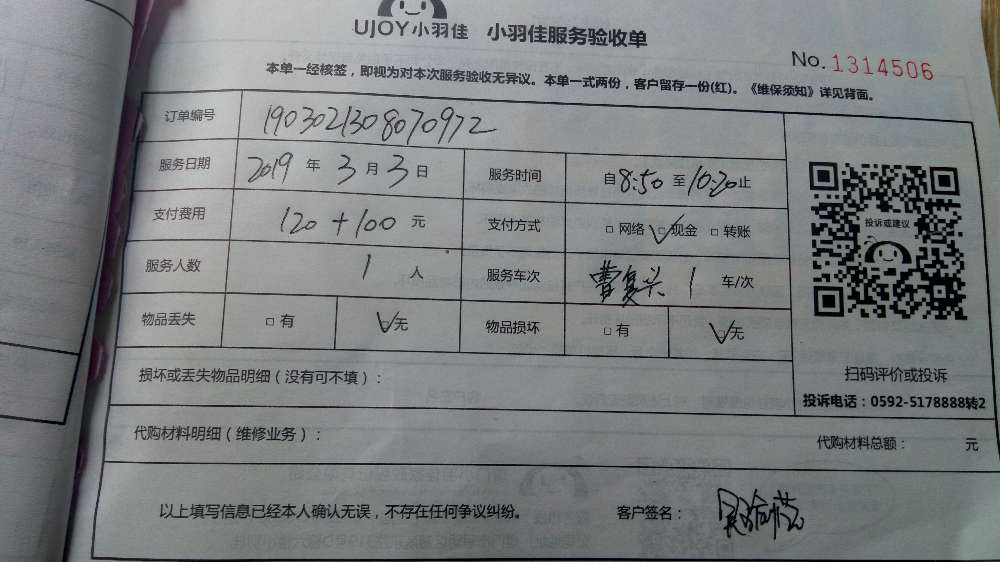 UJOY小羽佳 小羽佳服务验收单
No. 1314506
本单一经核签，即视为对本次服务验收无异议。本单一式两份，客户留存一份(红)。《维保须知》详见背面。
订单编号 1903021308070972
服务日期 2019 年 3 月 3 日 服务时间 自 8:50 至 10:20 止
支付费用 120+100 元 支付方式 □ 网络 ☑ 现金 □ 转账
服务人数 1 人 服务车次 曹复兴 1 车/次
物品丢失 □ 有 ☑ 无 物品损坏 □ 有 ☑ 无
投诉或建议
扫码评价或投诉
投诉电话：0592-5178888转2
损坏或丢失物品明细（没有可不填）：
代购材料明细（维修业务）： 代购材料总额： 元
以上填写信息已经本人确认无误，不存在任何争议纠纷。 客户签名：